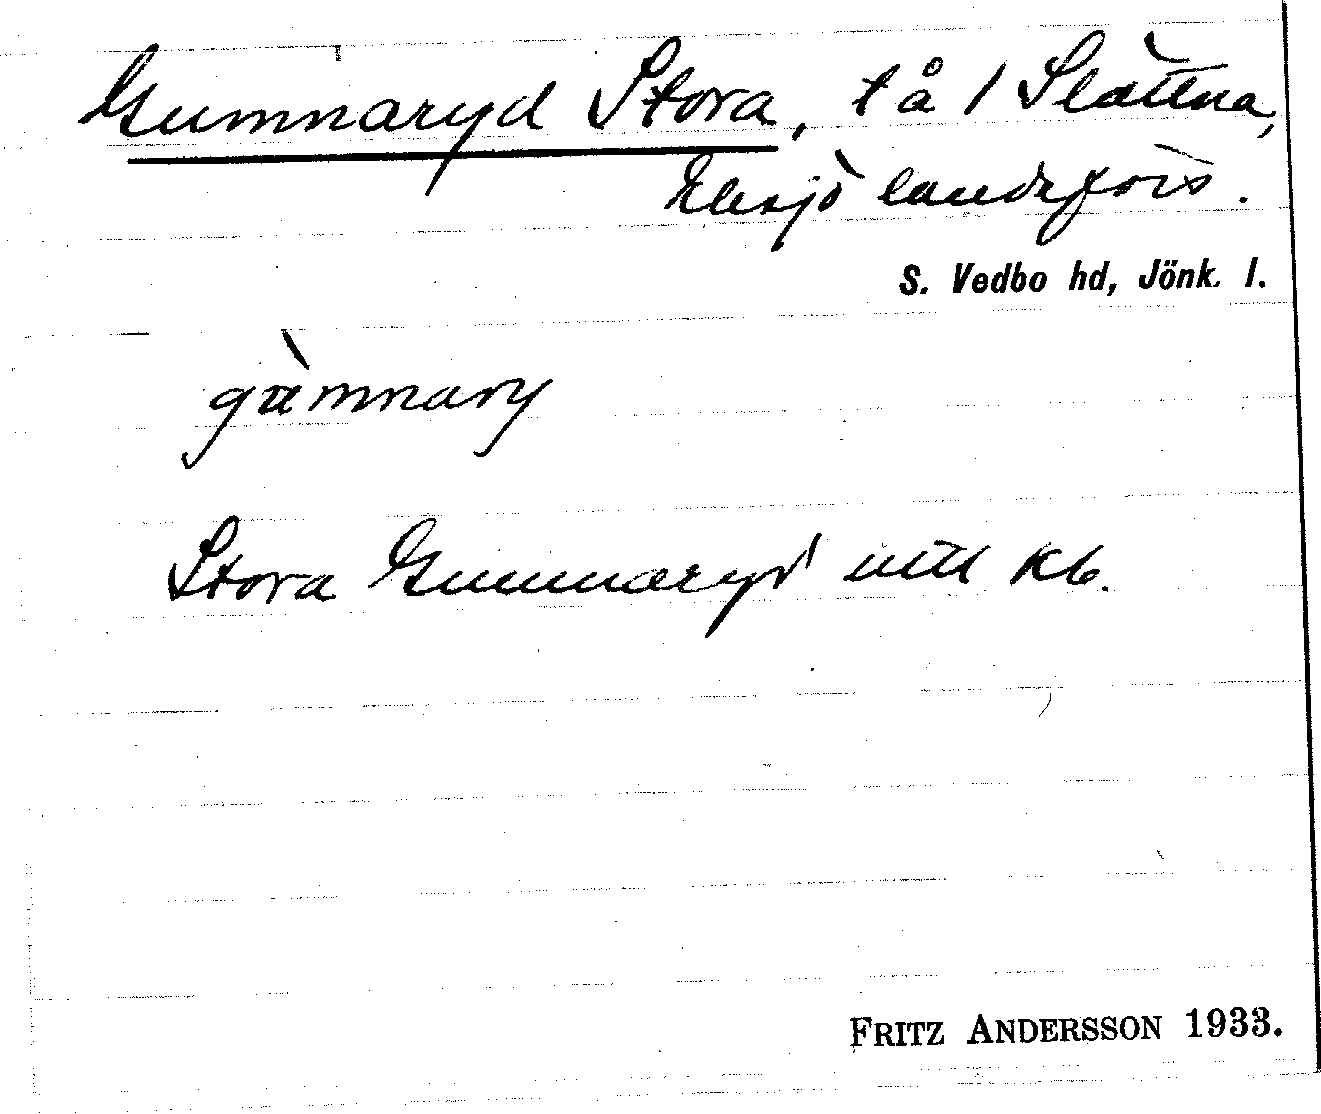 Gumnaryd Stora, t å 1 Slättna,
Eksjö landsförs.
S. Vedbo hd, Jönk. l.
gùmnary
Stora Gummaryd uttl kb.
FRITZ ANDERSSON 1933.